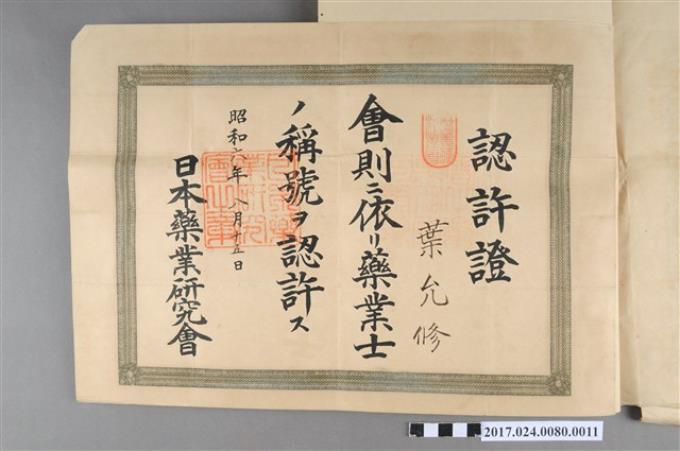 認許證
葉允修
會則ニ依リ藥業士
ノ稱號ヲ認許ス
昭和六年八月十五日
日本藥業研究會
2017.024.0080.0011